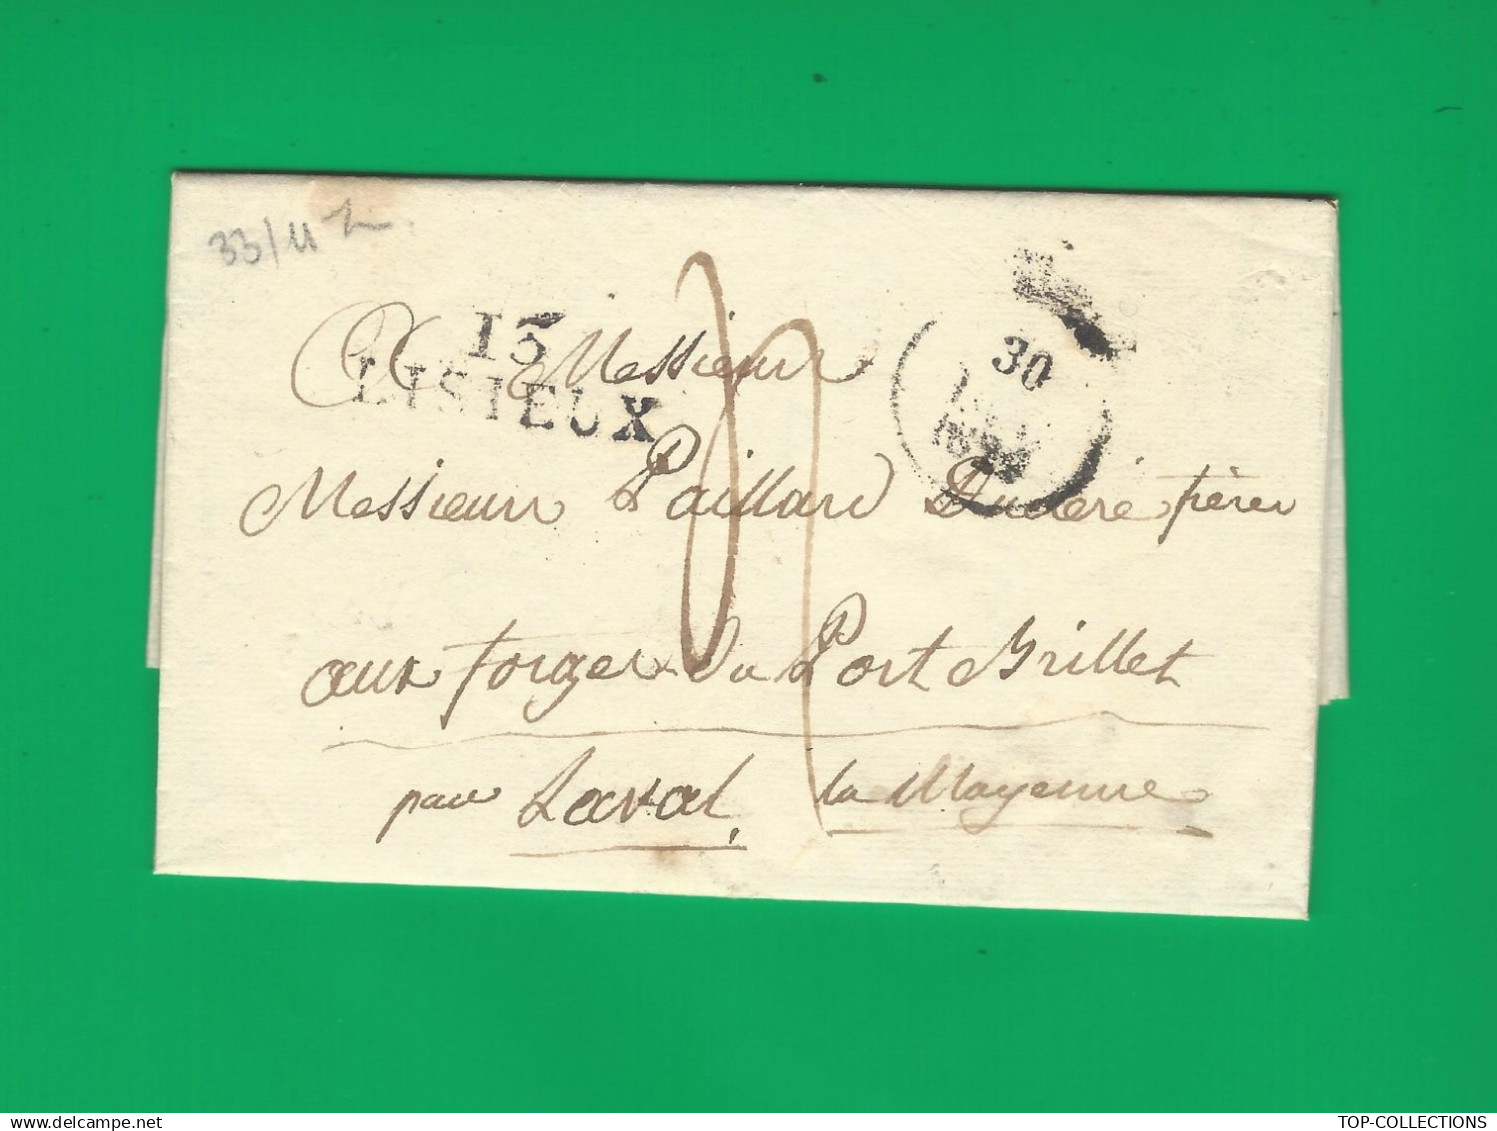 33/11
13
LISIEUX
30
A Messieurs
Messieurs Paillard Ducléré frères
aux forges du Port Brillet
par Laval, la Mayenne
TOP-COLLECTIONS